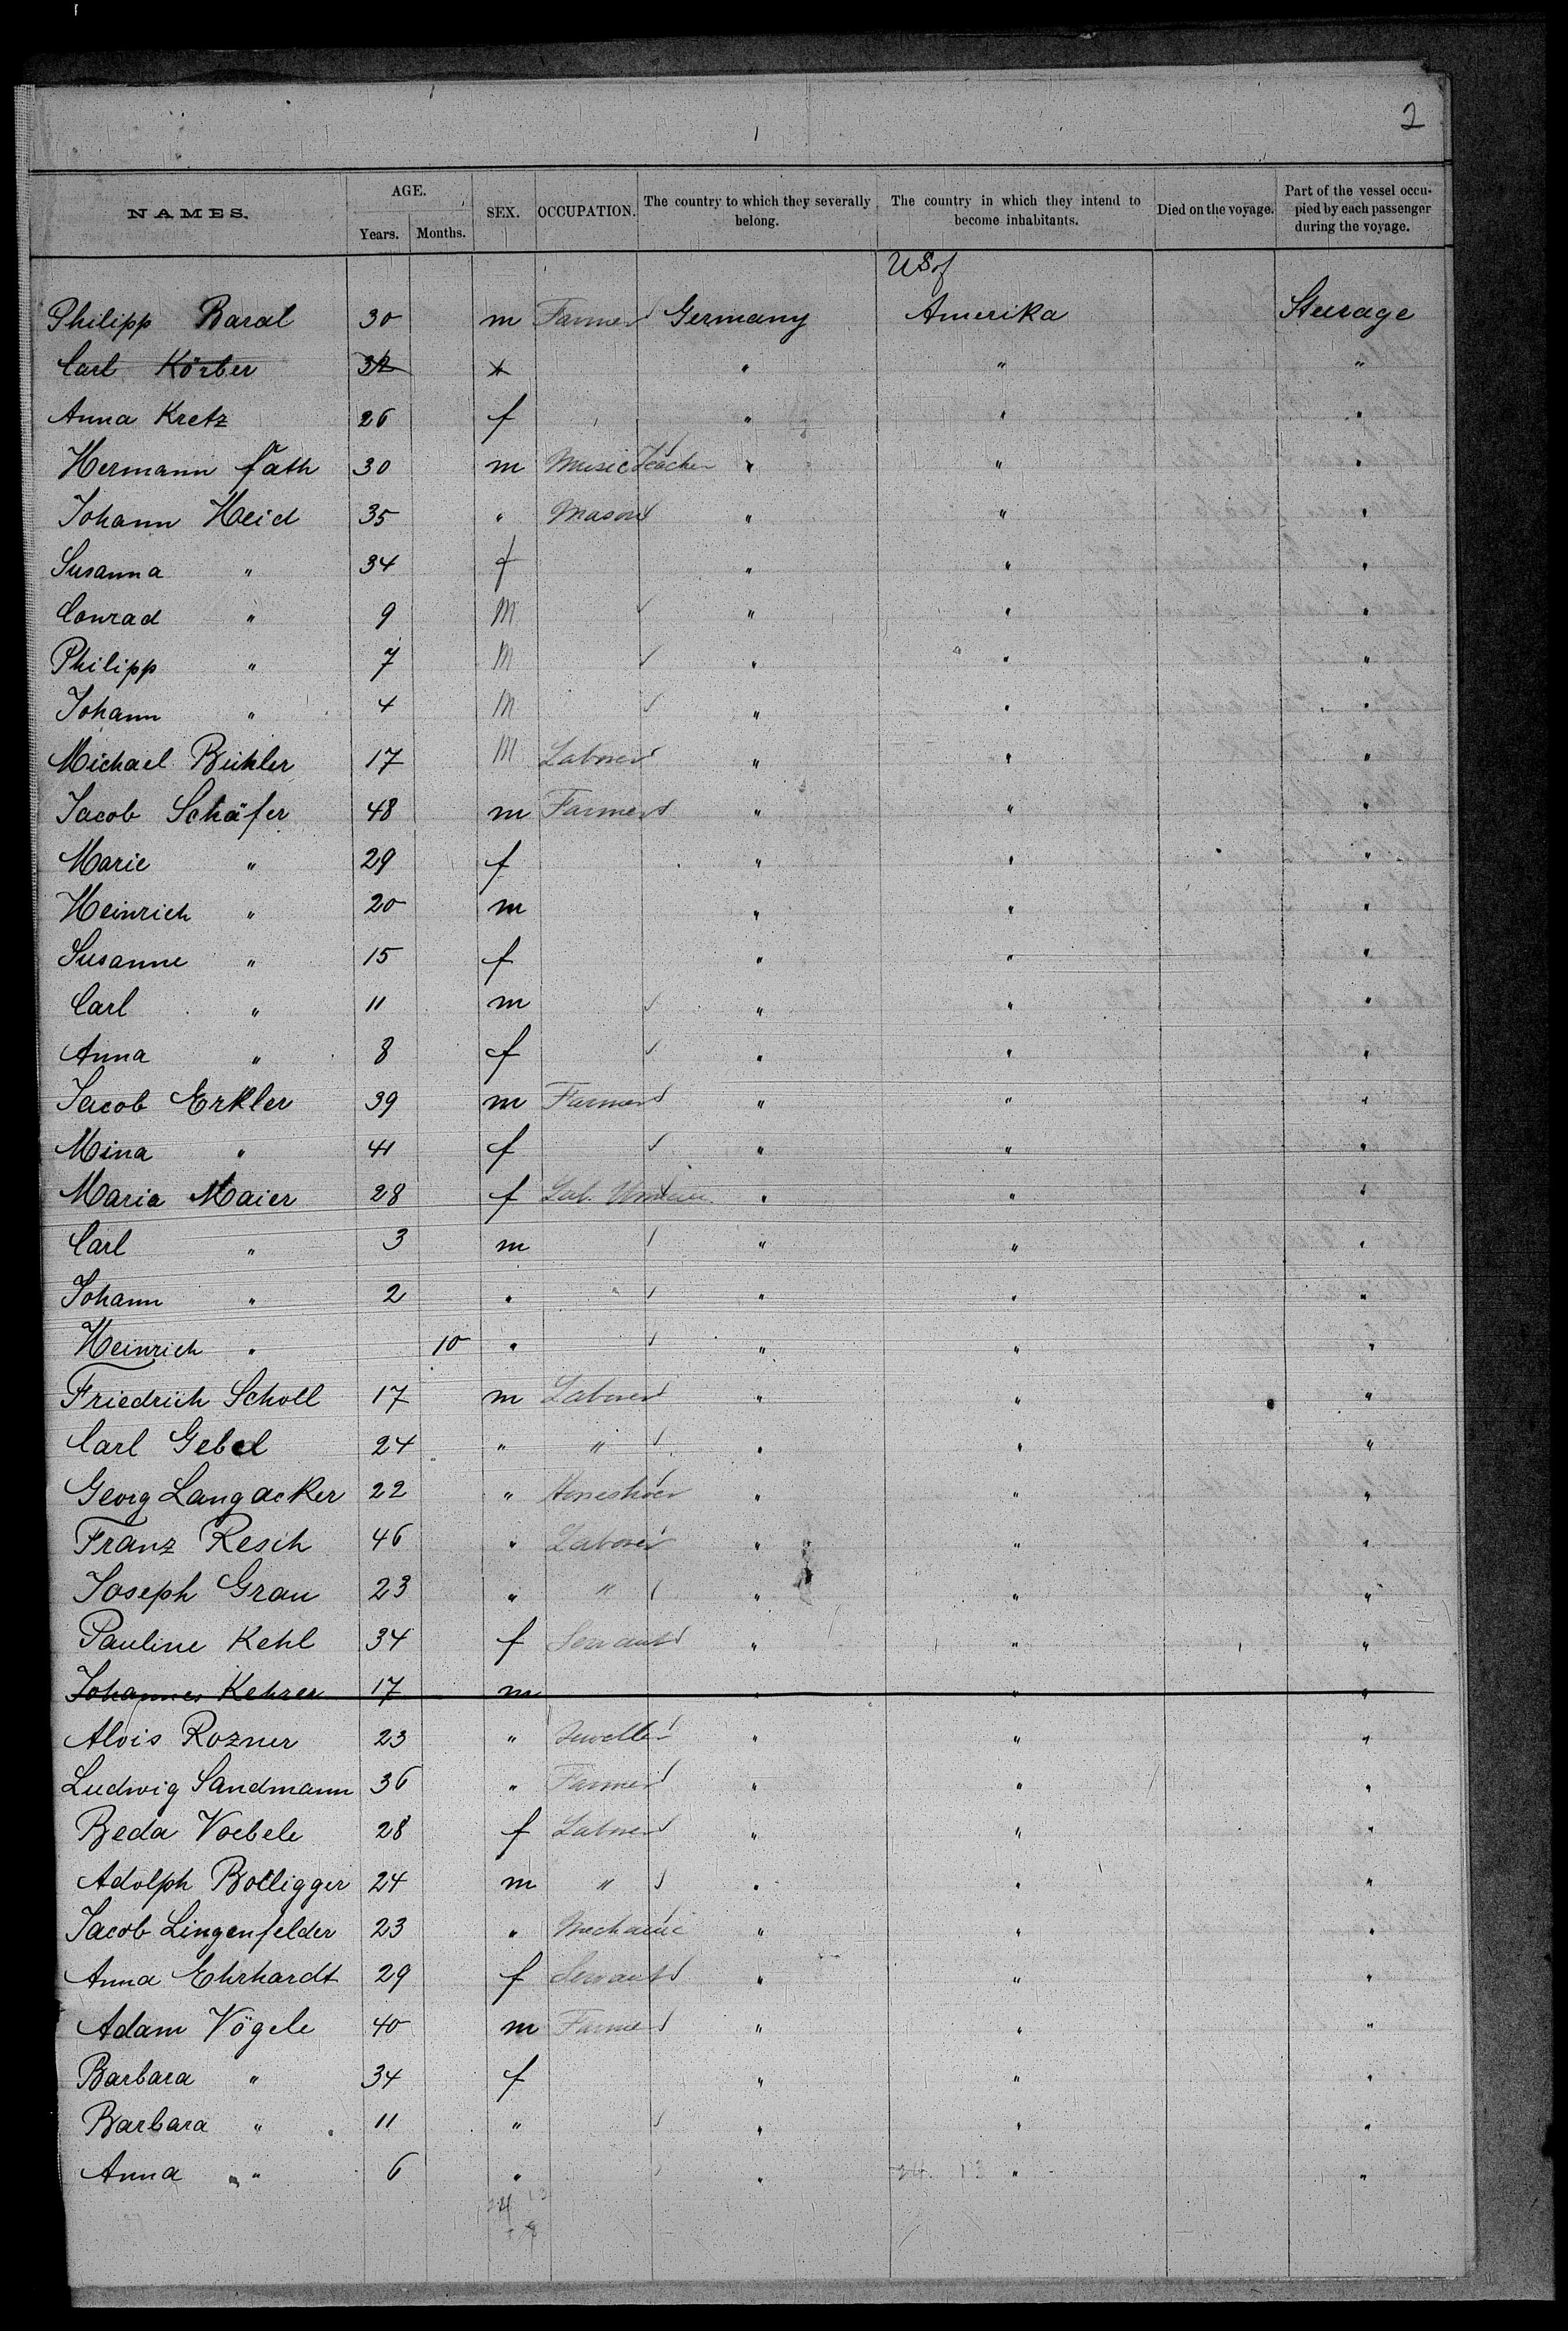 2
NAMES. AGE. Years. Months. SEX. OCCUPATION. The country to which they severally belong. The country in which they intend to become inhabitants. Died on the voyage. Part of the vessel occupied by each passenger during the voyage.
US of
Philipp Baral 30 m Farmer Germany Amerika Steerage
Carl Körber 32 " " "
Anna Kretz 26 f " " "
Hermann Fath 30 m Music Teacher " " "
Johann Heid 35 " Mason " " "
Susanna " 34 f " " "
Conrad " 9 M " " "
Philipp " 7 M " " "
Johann " 4 M " " "
Michael Bühler 17 M Laborer " " "
Jacob Schäfer 48 m Farmer " " "
Marie " 29 f " " "
Heinrich " 20 m " " "
Susanne " 15 f " " "
Carl " 11 m " " "
Anna " 8 f " " "
Jacob Erkler 39 m Farmer " " "
Mina " 41 f " " "
Maria Maier 28 f Lab. Woman " " "
Carl " 3 m " " "
Johann " 2 " " " "
Heinrich " 10 " " " "
Friedrich Scholl 17 m Laborer " " "
Carl Gebel 24 " " " " "
Georg Langacker 22 " Horseshoer " " "
Franz Resch 46 " Laborer " " "
Joseph Grau 23 " " " " "
Pauline Kehl 34 f Servant " " "
Johannes Kehrer 17 m " " "
Alois Rozner 23 " Jeweller " " "
Ludwig Sandmann 36 " Farmer " " "
Beda Voebele 28 f Laborer " " "
Adolph Bolligger 24 m " " " "
Jacob Lingenfelder 23 " Mechanic " " "
Anna Ehrhardt 29 f Servant " " "
Adam Vögele 40 m Farmer " " "
Barbara " 34 f " " "
Barbara " 11 " " " "
Anna " 6 " " 24 13 " "